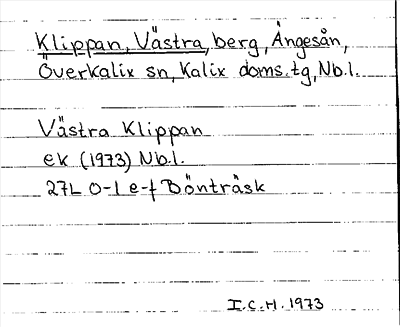 Klippan, Västra, berg, Ängesån,
Överkalix sn, Kalix doms. tg, Nb.l.
Västra Klippan
ek (1973) Nb.l.
27L 0-1 e-f Bönträsk
I.C.H. 1973